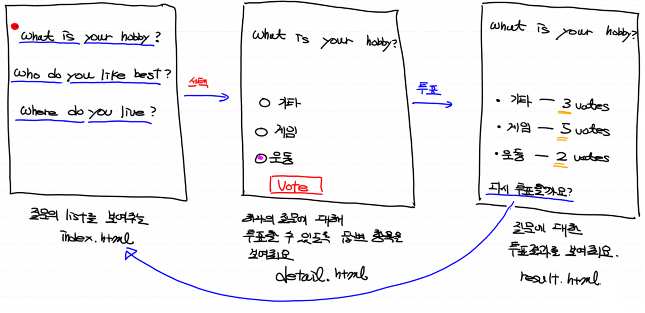 What is your hobby?
Who do you like best?
Where do you live?
질문의 list를 보여주는
index.html
선택
What is your hobby?
기타
게임
운동
Vote
하나의 질문에 대해
투표할 수 있도록 답변 항목을
보여줘요
detail.html
투표
What is your hobby?
· 기타 — 3 votes
· 게임 — 5 votes
· 운동 — 2 votes
다시 투표할까요?
질문에 대한
투표결과를 보여줘요.
result.html